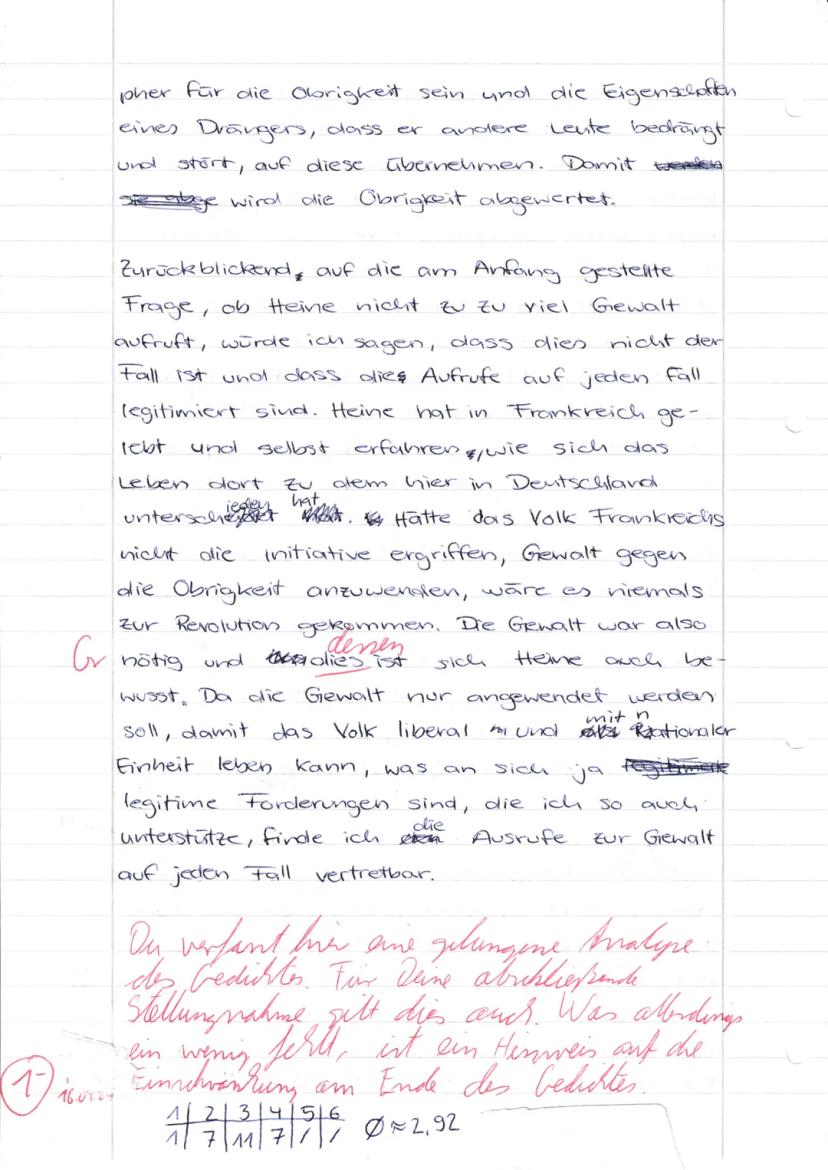 pher für die Obrigkeit sein und die Eigenschaften
eines Drängers, dass er andere Leute bedrängt
und stört, auf diese übernehmen. Damit
wird die Obrigkeit abgewertet.
Zurückblickend, auf die am Anfang gestellte
Frage, ob Heine nicht zu zu viel Gewalt
aufruft, würde ich sagen, dass dies nicht der
Fall ist und dass dies Aufrufe auf jeden Fall
legitimiert sind. Heine hat in Frankreich ge-
lebt und selbst erfahren, wie sich das
Leben dort zu dem hier in Deutschland
unterschieden hat. Hätte das Volk Frankreichs
nicht die Initiative ergriffen, Gewalt gegen
die Obrigkeit anzuwenden, wäre es niemals
zur Revolution gekommen. Die Gewalt war also
dessen
Gr nötig und dies ist sich Heine auch be-
wusst. Da die Gewalt nur angewendet werden
soll, damit das Volk liberal und mit nationaler
Einheit leben kann, was an sich ja
legitime Forderungen sind, die ich so auch
unterstütze, finde ich die Ausrufe zur Gewalt
auf jeden Fall vertretbar.
Du verfasst hier eine gelungene Analyse
des Gedichtes. Für Deine abschließende
Stellungnahme gilt dies auch. Was allerdings
ein wenig fehlt, ist ein Hinweis auf die
1- Einschränkung am Ende des Gedichtes.
1 | 2 | 3 | 4 | 5 | 6
1 | 7 | 11 | 7 | / | / Ø ≈ 2,92